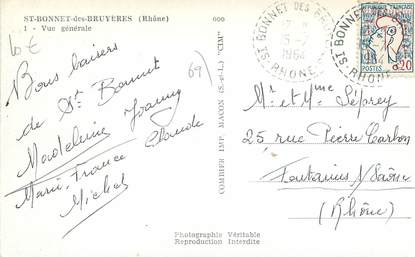 ST-BONNET-des-BRUYÈRES (Rhône)
1 - Vue générale
600
10 €
69)
Bons baisers
de St Bonnet
Madeleine Franny
Marie-France Claude
Michel
COMBIER IMP. MACON (S.-et-L.) "CIM"
Photographie Véritable
Reproduction Interdite
ST BONNET DES BRUYERES
1964
RHONE
REPUBLIQUE FRANÇAISE
0,20
POSTES
Mr et Mme Séprey
25 rue Pierre Carbon
Fontaines s/Saône
(Rhône)